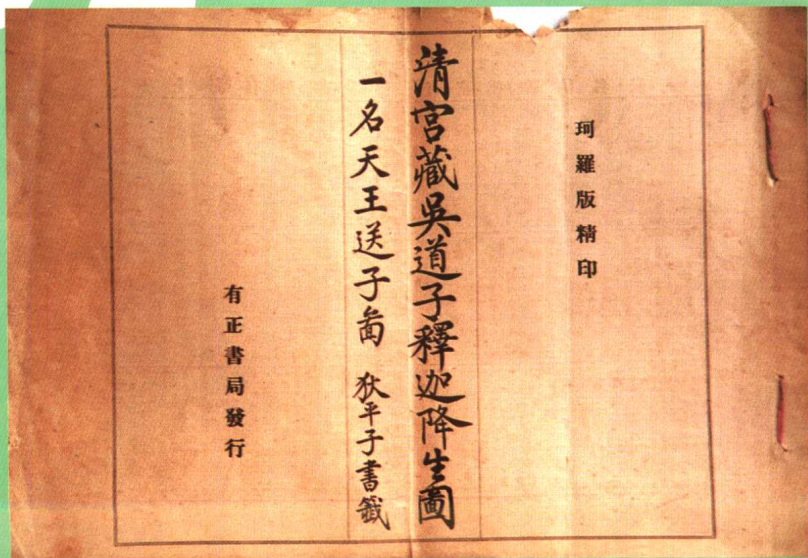 珂羅版精印
清宮藏吳道子釋迦降生圖
一名天王送子啚 狄平子書籤
有正書局發行